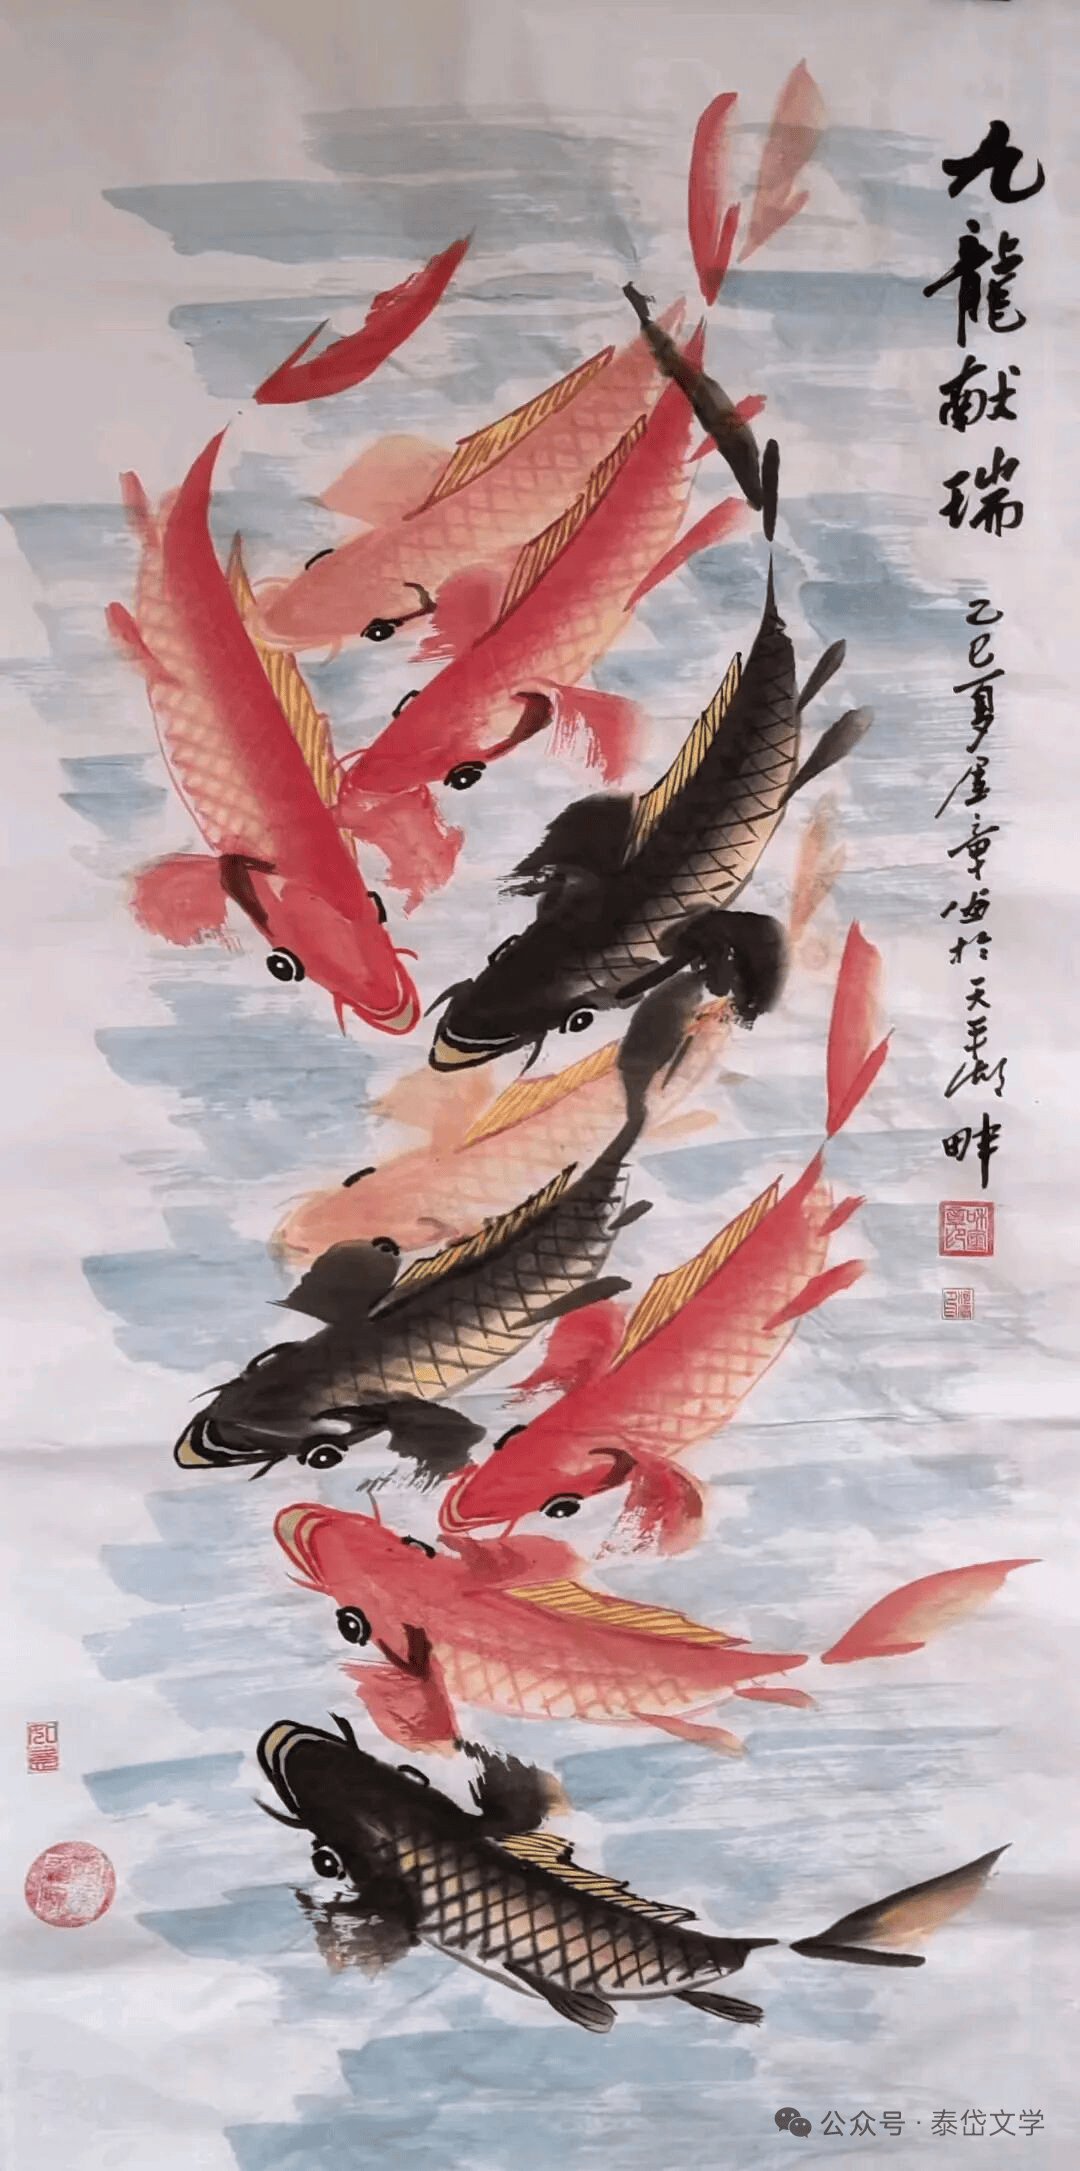 九龍献瑞
乙巳夏星章画於天平湖畔
如意
公众号·泰岱文学